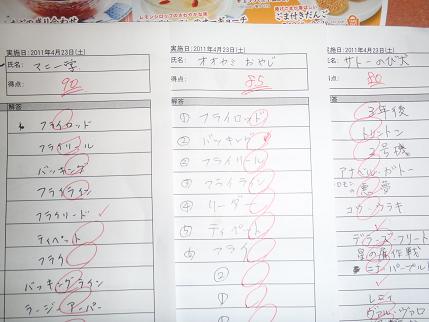 レモンシロップのさわやかな
ごま付きだんご
実施日:2011年4月23日(土)
氏名: マニー学
得点: 90
解答
フライロッド
フライリール
バッキング
フライライン
フライリード
ティペット
フライ
バッキングライン
ラージアーバー
実施日:2011年4月23日(土)
氏名: オオカミおやじ
得点: 85
解答
① フライロッド
② バッキング
② フライリール
③ フライライン
④ リーダー
⑤ ティペット
⑥ フライ
②
①
①
実施日:2011年4月23日(土)
氏名: サトーのび犬
得点: 80
答
3年後
トリントン
2号機
アナベル・ガトー
ソロモンの悪夢
コウ・ウラキ
デラーズ・フリート
星の屑作戦
ニナ・パープルト
レティ
ヴァル・ヴァロ